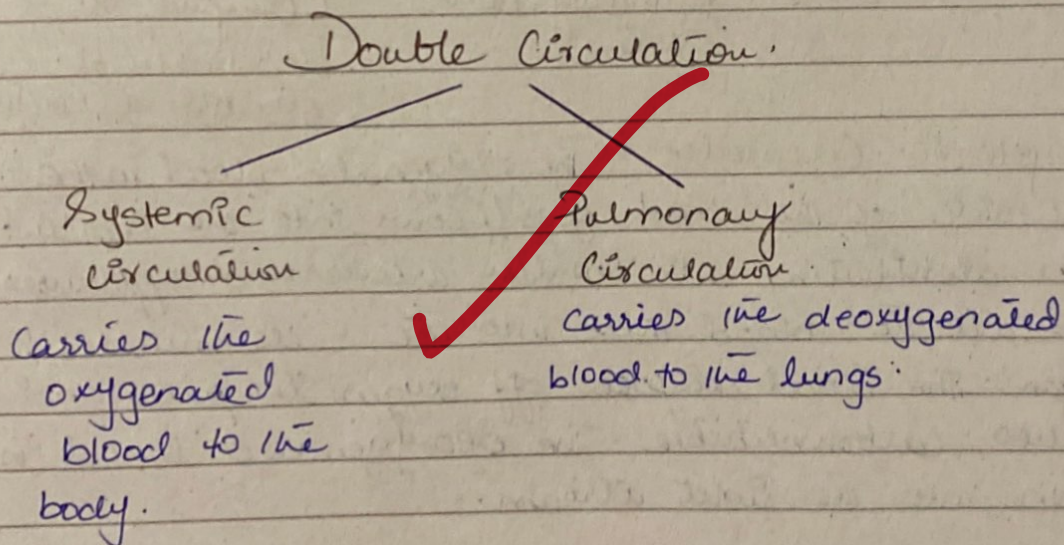 Double Circulation.
Systemic
circulation
carries the
oxygenated
blood to the
body.
Pulmonary
Circulation.
carries the deoxygenated
blood to the lungs.